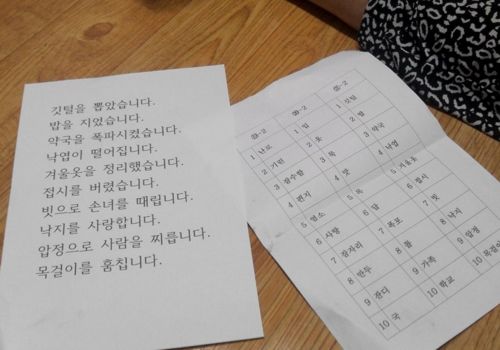 깃털을 뽑았습니다.
밥을 지었습니다.
약국을 폭파시켰습니다.
낙엽이 떨어집니다.
겨울옷을 정리했습니다.
접시를 버렸습니다.
빗으로 손녀를 때립니다.
낙지를 사랑합니다.
압정으로 사람을 찌릅니다.
목걸이를 훔칩니다.
1 난로 1 입 1 깃털
2 기린 2 옷 2 밥
3 잠수함 3 3 약국
4 편지 4 4 낙엽
5 염소 5 목 5 겨울옷
6 사탕 6 답 6 접시
7 잠자리 7 폭포 7 빗
8 만두 8 8 낙지
9 잔디 9 가족 9 압정
10 국 10 학교 10 목걸이